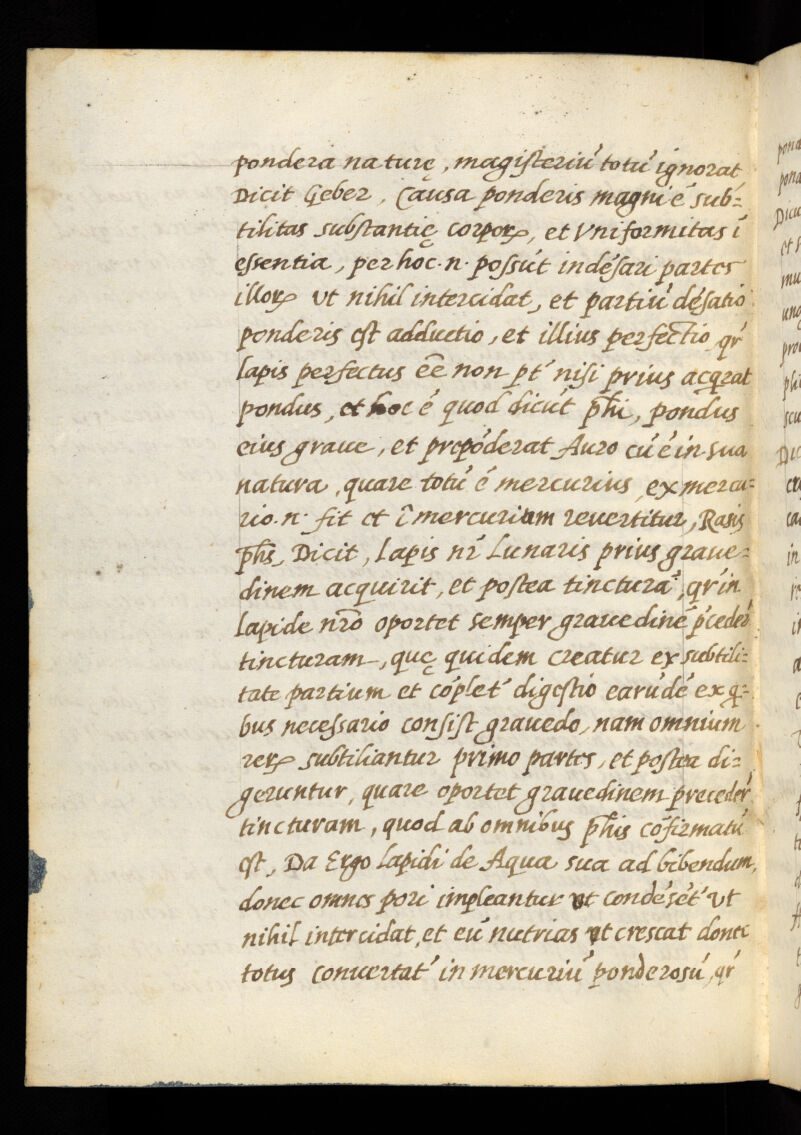 pondera naturę, magisteriū totū ignorat
Dicit Geber, Causa ponderis magni ē sub-
tilitas substantię corporꝝ, et Vniformitas ī
essentia, per hoc .n. possūt indēsari partes
illorꝝ ut nihil intercidat, et partiū dēsatio
ponderis est adductio, et illius perfectio, qr̄
lapis perfectus eē̄ non pt̄ nisi prius acqrat
pondus, et hoc ē quod dicūt phī̄, pondus
eius graue, et prepōderat Auro cū ē in sua
natura, quare totū ē mercurius, ex mercu=
rio .n. fit et ī mercurium reuertitur, Rasis
phs̄, Dicit, lapis nr̄ Lunaris prius graue=
dinem acquirit, et postea tincturā, qr̄ in
lapide nrō̄ oportet semper grauedinē p̄ceder̄
tincturam, quę quidem creatur ex subtili=
tate partium et cōplet̄ digestio earūdē ex q-
bus necessario consist̄ grauedo, nam omnium
rerꝝ subtiliantur primo partes, et postea di=
geruntur, quare oportet grauedinem preceder̄
tincturam, quod ab omnibus phīs̄ cōfirmatū
est, Da Ergo lapidi de Aqua sua ad bibendum,
donec omnes pori impleantur ut condēsēt̄ ut
nihil intercidat, et eū nutrias ut crescat donec
totus conuertat̄ in mercuriū ponderosū, qr̄

pond
pona
Dicit